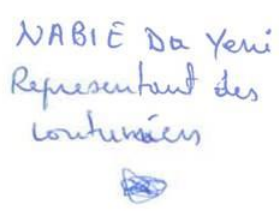 NABIE Da Yeri
Representant des
coutumiers